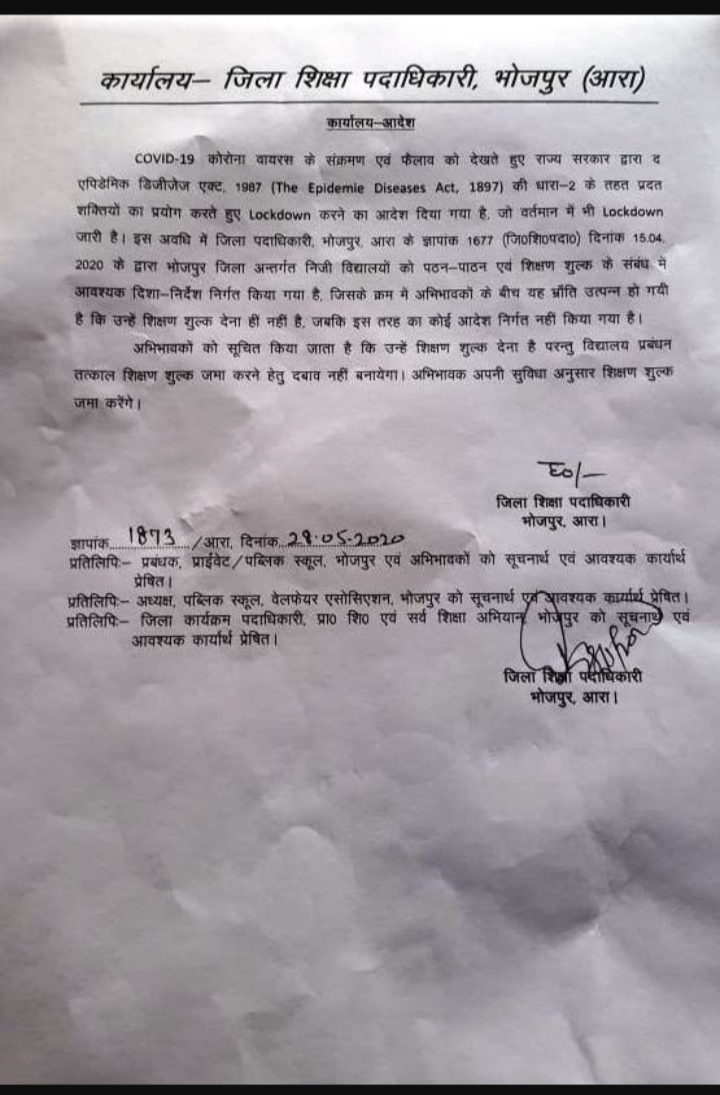 कार्यालय– जिला शिक्षा पदाधिकारी, भोजपुर (आरा)
कार्यालय–आदेश
COVID-19 कोरोना वायरस के संक्रमण एवं फैलाव को देखते हुए राज्य सरकार द्वारा द
एपिडेमिक डिजीजेज एक्ट, 1987 (The Epidemie Diseases Act, 1897) की धारा–2 के तहत प्रदत
शक्तियों का प्रयोग करते हुए Lockdown करने का आदेश दिया गया है, जो वर्तमान में भी Lockdown
जारी है। इस अवधि में जिला पदाधिकारी, भोजपुर, आरा के ज्ञापांक 1677 (जि0शि0पदा0) दिनांक 15.04.
2020 के द्वारा भोजपुर जिला अन्तर्गत निजी विद्यालयों को पठन–पाठन एवं शिक्षण शुल्क के संबंध में
आवश्यक दिशा–निर्देश निर्गत किया गया है, जिसके क्रम मे अभिभावकों के बीच यह भ्राँति उत्पन्न हो गयी
है कि उन्हें शिक्षण शुल्क देना हीं नहीं है, जबकि इस तरह का कोई आदेश निर्गत नहीं किया गया है।
अभिभावकों को सूचित किया जाता है कि उन्हें शिक्षण शुल्क देना है परन्तु विद्यालय प्रबंधन
तत्काल शिक्षण शुल्क जमा करने हेतु दबाव नहीं बनायेगा। अभिभावक अपनी सुविधा अनुसार शिक्षण शुल्क
जमा करेंगे।
ह0/–
जिला शिक्षा पदाधिकारी
भोजपुर, आरा।
ज्ञापांक 1873 /आरा, दिनांक 28.05.2020
प्रतिलिपिः– प्रबंधक, प्राईवेट/पब्लिक स्कूल, भोजपुर एवं अभिभावकों को सूचनार्थ एवं आवश्यक कार्यार्थ
प्रेषित।
प्रतिलिपिः– अध्यक्ष, पब्लिक स्कूल, वेलफेयर एसोसिएशन, भोजपुर को सूचनार्थ एवं आवश्यक कार्यार्थ प्रेषित।
प्रतिलिपिः– जिला कार्यक्रम पदाधिकारी, प्रा0 शि0 एवं सर्व शिक्षा अभियान, भोजपुर को सूचनार्थ एवं
आवश्यक कार्यार्थ प्रेषित।
जिला शिक्षा पदाधिकारी
भोजपुर, आरा।